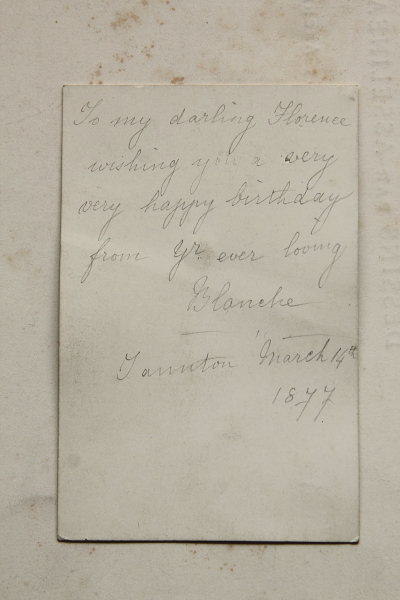 To my darling Florence
wishing you a very
very happy birthday
from Yr ever loving
Blanche
Taunton March 14th
1877